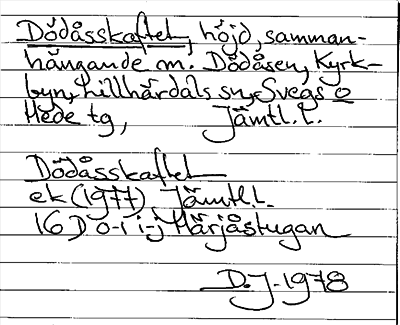 Dödåsskaftet, höjd, samman-
hängande m. Dödåsen, Kyrk-
byn, Lillhärdals sn, Svegs o
Hede tg, Jämtl. l.
Dödåsskaftet
ek (1977) Jämtl. l.
16 D o-i i-j Härjåstugan
D. J. 1978